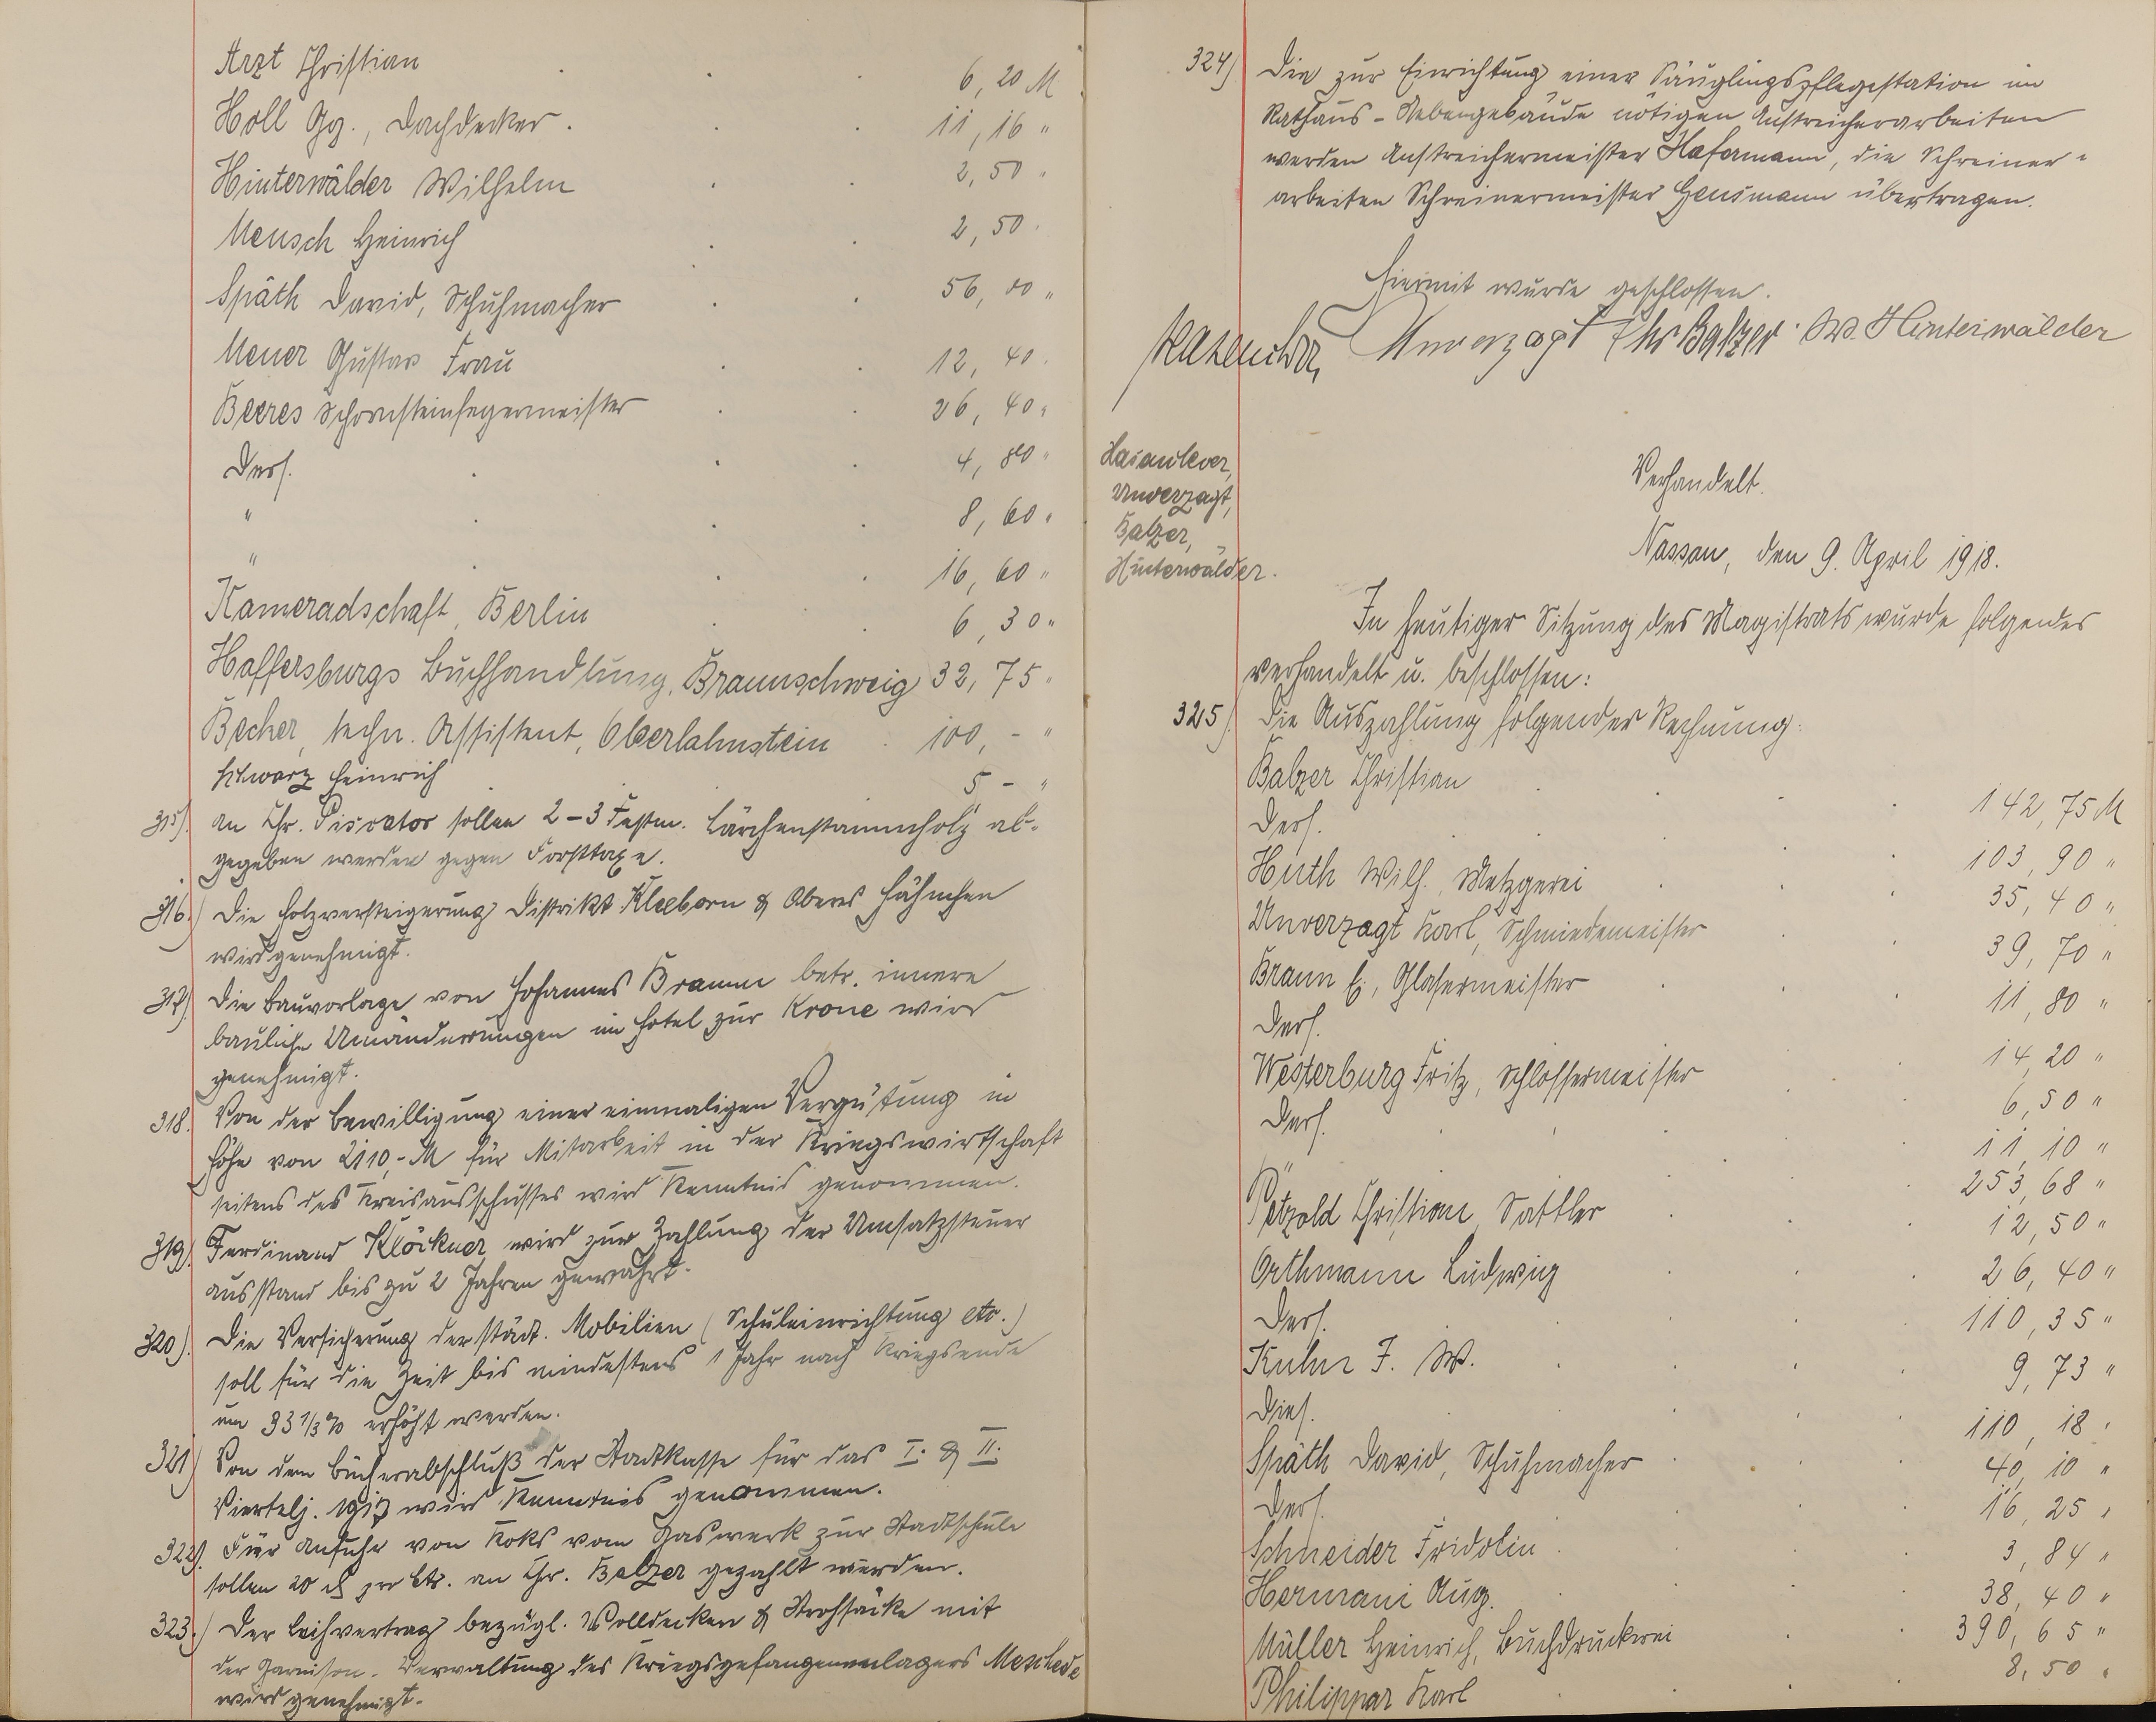 Arzt Christian . . . 6,20 M
Holl Gg., Dachdecker . . . 11,16 "
Hinterwälder Wilhelm . . 2,50 "
Mensch Heinrich . . 2,50 "
Späth David, Schuhmacher . . 56,00 "
Meuer Gustav Frau . . 12,40 "
Beeres Schornsteinfegermeister . . 26,40 "
Ders. . . . 4,80 "
" . . . 8,60 "
" . . . 16,60 "
Kameradschaft, Berlin . . 6,30 "
Haffersburgs Buchhandlung, Braunschweig 32,75 "
Becher, techn. Assistent, Oberlahnstein . 100,- "
Schwarz Heinrich 5 - "
315). An Chr. Pisvator sollen 2-3 Festm. Lärchenstammholz ab-
gegeben werden gegen Forsttaxe.
316.) Die Holzversteigerung Distrikt Kleeborn & Oberes Hähnchen
wird genehmigt.
317) Die Bauvorlage von Johannes Braun betr. innere
bauliche Umänderungen im Hotel zur Krone wird
genehmigt.
318. Von der Bewilligung einer einmaligen Vergütung in
Höhe von 2110,- M für Mitarbeit in der Kriegswirtschaft
seitens des Kreisausschusses wird Kenntnis genommen.
319) Ferdinand Klöckner wird zur Zahlung der Umsatzsteuer
Ausstand bis zu 2 Jahren gewährt.
320). Die Versicherung der städt. Mobilien (Schuleinrichtung etc.)
soll für die Zeit bis mindestens 1 Jahr nach Kriegsende
um 33 1/3 % erhöht werden.
321) Von dem Bücherabschluß der Stadtkasse für das I. & II.
Viertelj. 1917 wird Kenntnis genommen.
322). Für Anfuhr von Koks vom Gaswerk zur Stadtschule
sollen 20 ₰ pro Ctr. an Chr. Balzer gezahlt werden.
323.) Der Leihvertrag bezügl. Wolldecken & Strohsäcke mit
der Garnison-Verwaltung des Kriegsgefangenenlagers Meschede
wird genehmigt.
324) Die zur Einrichtung einer Säuglingspflegestation im
Rathaus-Nebengebäude nötigen Anstreicherarbeiten
werden Anstreichermeister Hafermann, die Schreiner-
arbeiten Schreinermeister Hensmann übertragen.
Hiermit wurde geschlossen.
Unverzagt Chr Balzer. W. Hinterwälder
Hasenclever,
Unverzagt,
Balzer,
Hinterwälder.
Verhandelt.
Nassau, den 9. April 1918.
In heutiger Sitzung des Magistrats wurde folgendes
verhandelt u. beschlossen:
325). Die Auszahlung folgender Rechnung:
Balzer Christian . . . 142,75 M
Ders. . . . 103,90 "
Huth Wilh. Metzgerei . . . 35,40 "
Unverzagt Karl, Schmiedemeister . . 39,70 "
Braun H., Glasermeister . . . 11,80 "
Ders. 14,20 "
Westerburg Fritz, Schlossermeister . . 6,50 "
Ders. . . . 11,10 "
" . . 253,68 "
Petzold Christian Sattler . . . 12,50 "
Orthmann Ludwig . . . 26,40 "
Ders. . . . 110,35 "
Kuhn F. W. . . . 9,73 "
Dies. . . . 110,18 "
Späth David, Schuhmacher . . . 40,10 "
Ders. . . . 16,25 "
Schneider Fridolin . . . 3,84 "
Hermani Aug. . . . 38,40 "
Müller Heinrich, Buchdruckerei . . 390,65 "
Philippar Karl . . . 8,50 "